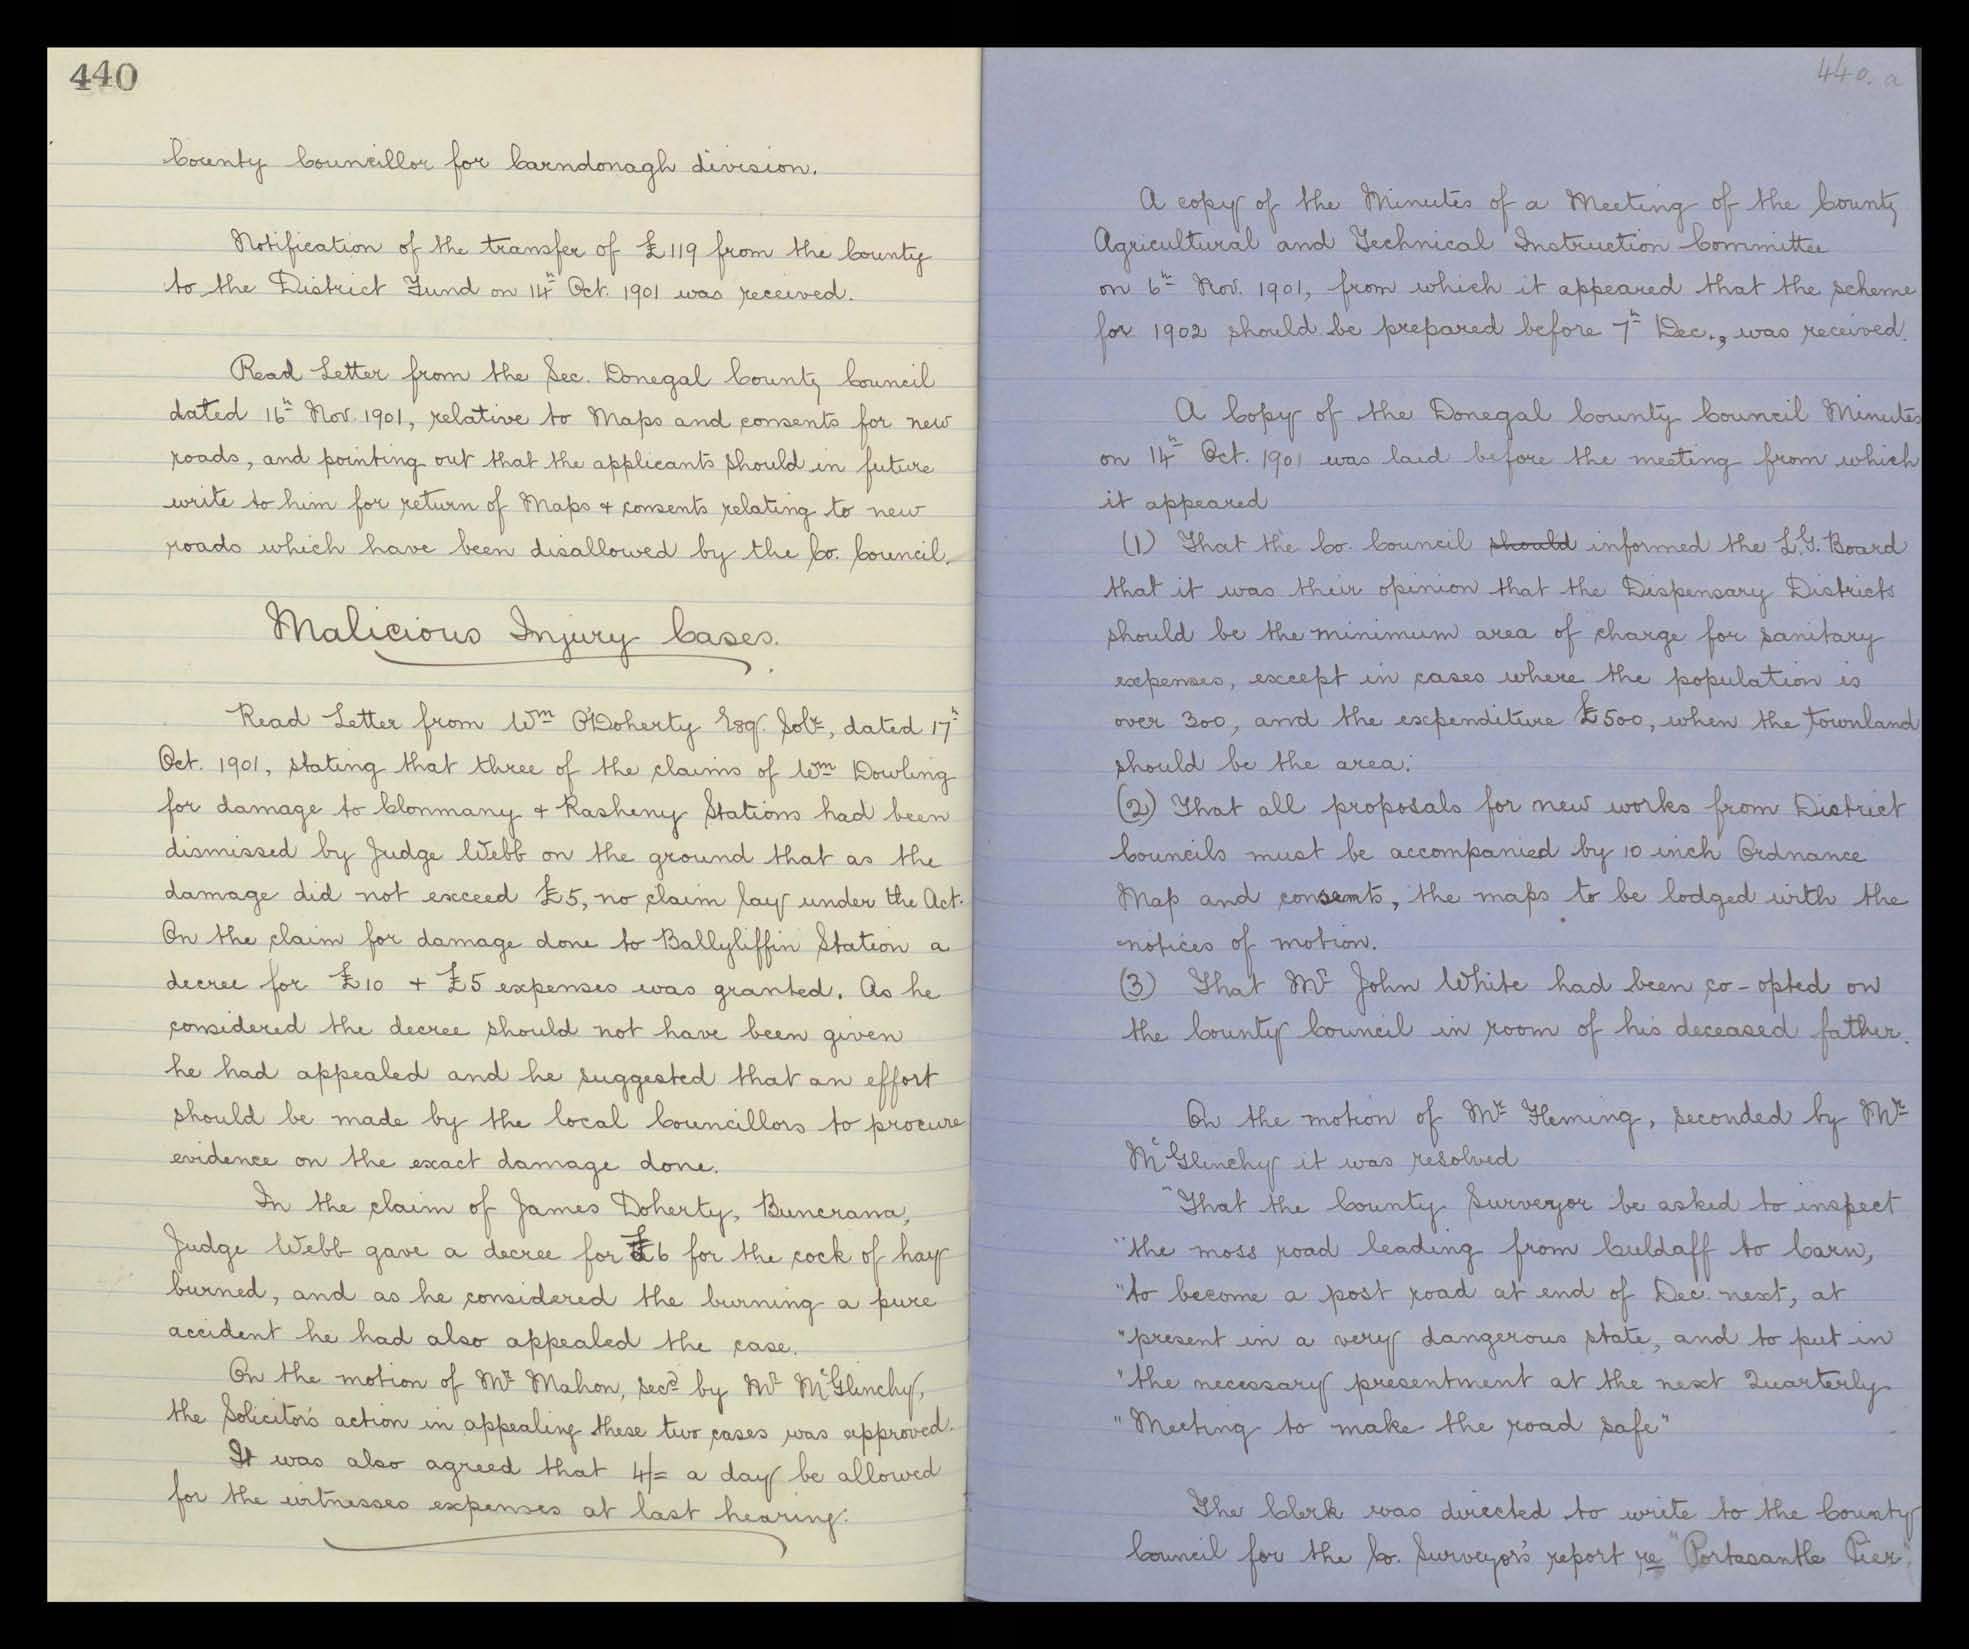 440
County Councillor for Carndonagh division.
Notification of the transfer of £119 from the County
to the District Fund on 14th Oct. 1901 was received.
Read Letter from the Sec. Donegal County Council
dated 16th Nov. 1901, relative to Maps and consents for new
roads, and pointing out that the applicants should in future
write to him for return of Maps & consents relating to new
roads which have been disallowed by the Co. Council.
Malicious Injury Cases.
Read Letter from Wm O'Doherty Esq. Solr, dated 17th
Oct. 1901, stating that three of the claims of Wm Dowling
for damage to Clonmany & Rasheny Stations had been
dismissed by Judge Webb on the ground that as the
damage did not exceed £5, no claim lay under the Act.
On the claim for damage done to Ballyliffin Station a
decree for £10 + £5 expenses was granted. As he
considered the decree should not have been given
he had appealed and he suggested that an effort
should be made by the local Councillors to procure
evidence on the exact damage done.
In the claim of James Doherty, Buncrana,
Judge Webb gave a decree for £6 for the cock of hay
burned, and as he considered the burning a pure
accident he had also appealed the case.
On the motion of Mr Mahon, secd by Mr McGlinchy,
the Solicitor's action in appealing these two cases was approved.
It was also agreed that 4/= a day be allowed
for the witnesses expenses at last hearing.
440.a
A copy of the Minutes of a Meeting of the County
Agricultural and Technical Instruction Committee
on 6th Nov. 1901, from which it appeared that the scheme
for 1902 should be prepared before 7th Dec., was received.
A Copy of the Donegal County Council Minutes
on 14th Oct. 1901 was laid before the meeting from which
it appeared
(1) That the Co. Council should informed the L.G. Board
that it was their opinion that the Dispensary Districts
should be the minimum area of charge for sanitary
expenses, except in cases where the population is
over 300, and the expenditure £500, when the townland
should be the area.
(2) That all proposals for new works from District
Councils must be accompanied by 10 inch Ordnance
Map and consents, the maps to be lodged with the
notices of motion.
(3) That Mr John White had been co-opted on
the County Council in room of his deceased father.
On the motion of Mr Fleming, seconded by Mr
McGlinchy it was resolved
"That the County Surveyor be asked to inspect
"the moss road leading from Culdaff to Carn,
"to become a post road at end of Dec. next, at
"present in a very dangerous state, and to put in
"the necessary presentment at the next Quarterly
"Meeting to make the road safe"
The Clerk was directed to write to the County
Council for the Co. Surveyor's report re "Portasantle Pier".